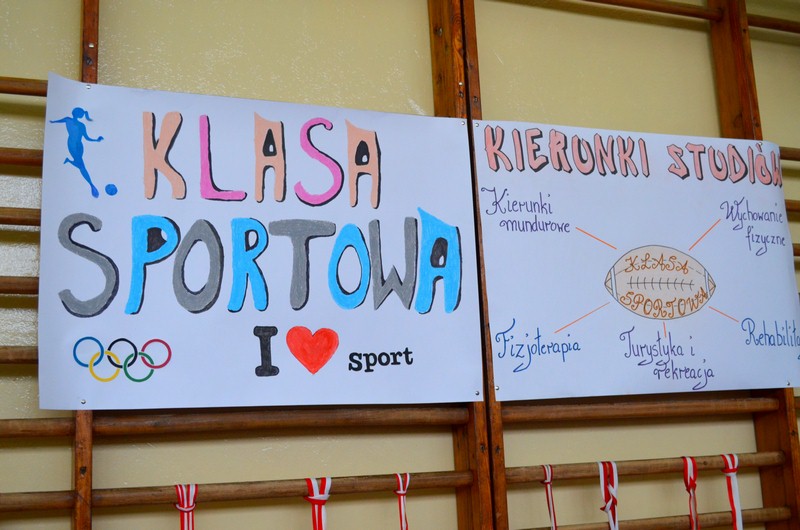 KLASA
SPORTOWA
I sport
KIERUNKI STUDIÓW
Kierunki
mundurowe
Wychowanie
fizyczne
KLASA
SPORTOWA
Fizjoterapia
Turystyka i
rekreacja